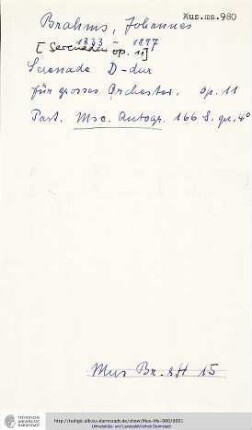 Mus.ms.980
Brahms, Johannes
1833 - 1897
[Serenaden op. 11]
Serenade D-dur
für grosses Orchester. op. 11
Part. Mso. Autogr. 166 S. qu. 4°
Mus Br. 15
TECHNISCHE UNIVERSITÄT DARMSTADT
http://tudigit.ulb.tu-darmstadt.de/show/Mus-Ms-980/0001
Universitäts- und Landesbibliothek Darmstadt